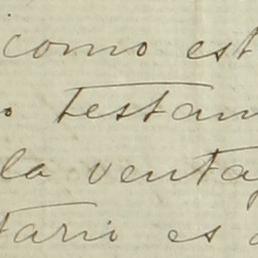 como est
o testam
la venta
tario es